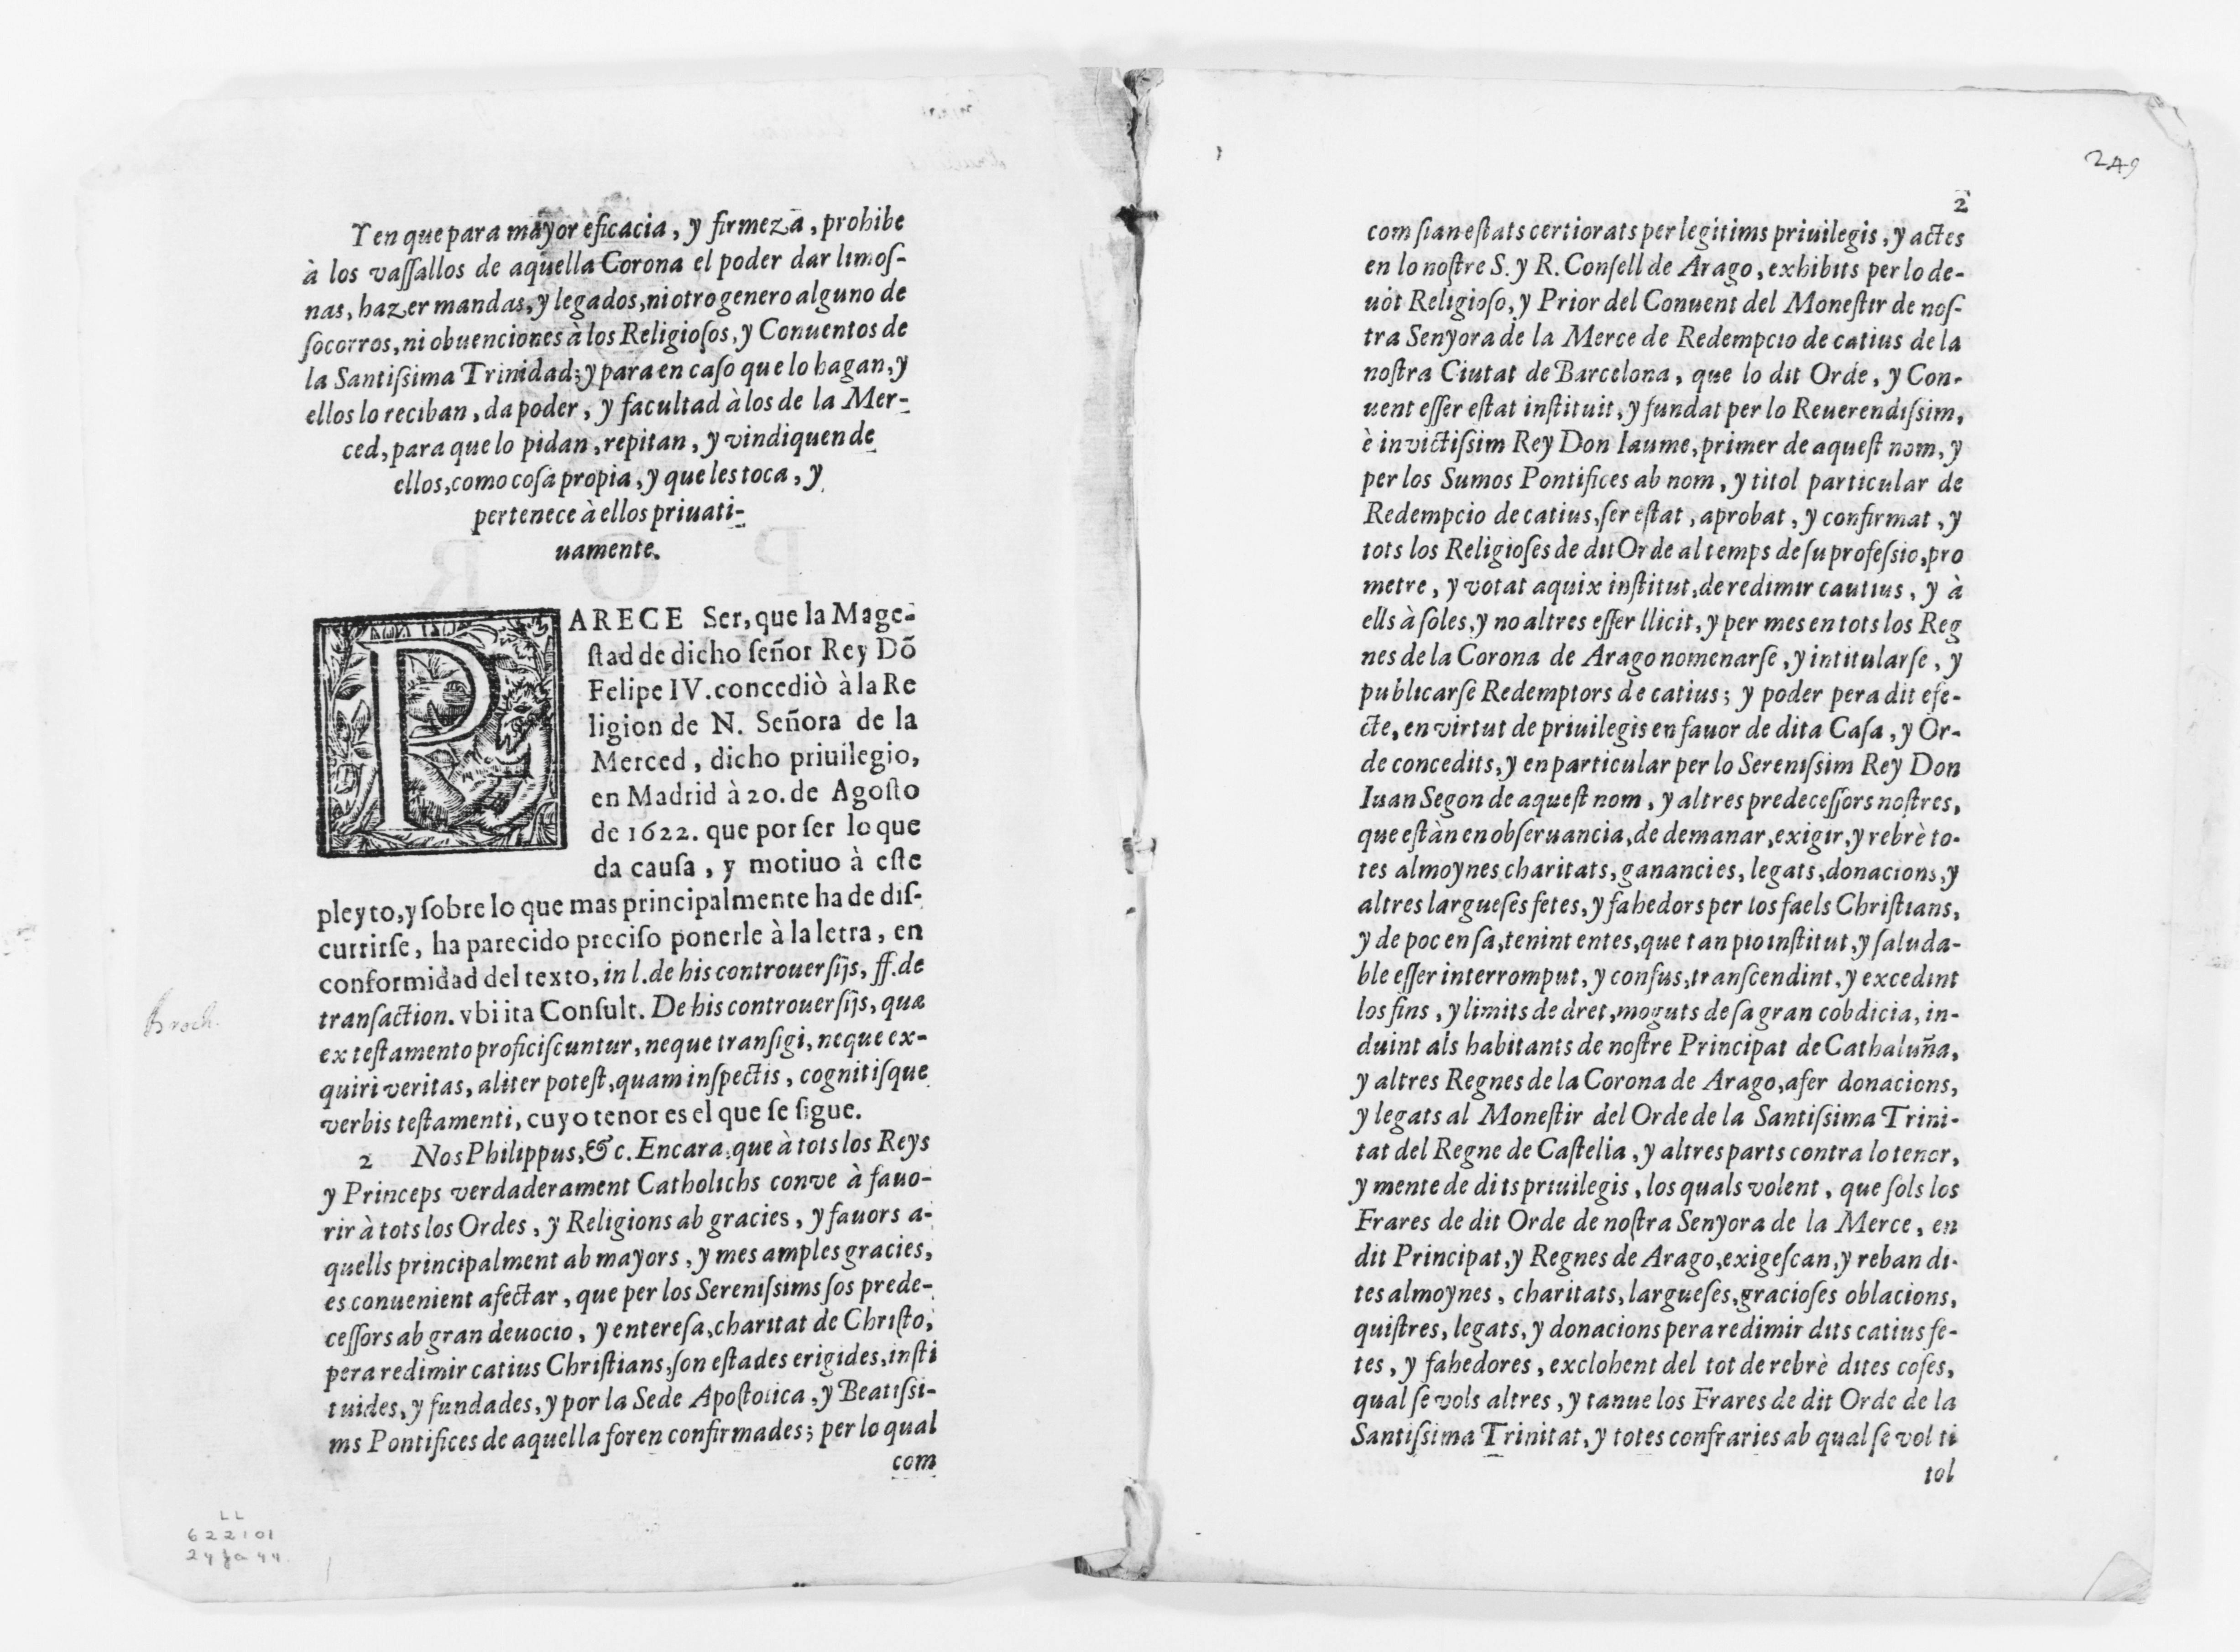 Y en que para mayor eficacia, y firmeza, prohibe
à los vaſſallos de aquella Corona el poder dar limoſ-
nas, hazer mandas, y legados, ni otro genero alguno de
ſocorros, ni obuenciones à los Religioſos, y Conuentos de
la Santiſsima Trinidad; y para en caſo que lo hagan, y
ellos lo reciban, da poder, y facultad à los de la Mer-
ced, para que lo pidan, repitan, y vindiquen de
ellos, como coſa propia, y que les toca, y
pertenece à ellos priuati-
uamente.
PARECE Ser, que la Mage-
ſtad de dicho ſeñor Rey Dõ
Felipe IV. concediò à la Re
ligion de N. Señora de la
Merced, dicho priuilegio,
en Madrid à 20. de Agoſto
de 1622. que por ſer lo que
da cauſa, y motiuo à eſte
pleyto, y ſobre lo que mas principalmente ha de diſ-
currirſe, ha parecido preciſo ponerle à la letra, en
conformidad del texto, in l. de his controuerſijs, ff. de
tranſaction. vbi ita Conſult. De his controuerſijs, quæ
ex teſtamento proficiſcuntur, neque tranſigi, neque ex-
quiri veritas, aliter poteſt, quam inſpectis, cognitiſque
verbis teſtamenti, cuyo tenor es el que ſe ſigue.
2 Nos Philippus, & c. Encara, que à tots los Reys
y Princeps verdaderament Catholichs conve à fauo-
rir à tots los Ordes, y Religions ab gracies, y fauors a-
quells principalment ab mayors, y mes amples gracies,
es conuenient afectar, que per los Sereniſsims ſos prede-
ceſſors ab gran deuocio, y entereſa, charitat de Chriſto,
pera redimir catius Chriſtians, ſon eſtades erigides, inſti
tuides, y fundades, y por la Sede Apoſtolica, y Beatiſsi-
ms Pontifices de aquella foren confirmades; per lo qual
com
Broch.
LL
622101
24 Ja 44.
249
2
com ſian eſtats certiorats per legitims priuilegis, y actes
en lo noſtre S. y R. Conſell de Arago, exhibits per lo de-
uòt Religioſo, y Prior del Conuent del Moneſtir de noſ-
tra Senyora de la Merce de Redempcio de catius de la
noſtra Ciutat de Barcelona, que lo dit Orde, y Con-
uent eſſer eſtat inſtituit, y fundat per lo Reuerendiſsim,
è invictiſsim Rey Don Iaume, primer de aqueſt nom, y
per los Sumos Pontifices ab nom, y titol particular de
Redempcio de catius, ſer eſtat, aprobat, y confirmat, y
tots los Religioſes de dit Orde al temps de ſu profeſsio, pro
metre, y votat aquix inſtitut, de redimir cautius, y à
ells à ſoles, y no altres eſſer llicit, y per mes en tots los Reg
nes de la Corona de Arago nomenarſe, y intitularſe, y
publicarſe Redemptors de catius; y poder pera dit efe-
cte, en virtut de priuilegis en fauor de dita Caſa, y Or-
de concedits, y en particular per lo Sereniſsim Rey Don
Iuan Segon de aqueſt nom, y altres predeceſſors noſtres,
que eſtàn en obſeruancia, de demanar, exigir, y rebrè to-
tes almoynes charitats, ganancies, legats, donacions, y
altres largueſes fetes, y fahedors per los faels Chriſtians,
y de poc en ſa, tenint entes, que tan pio inſtitut, y ſaluda-
ble eſſer interromput, y confus, tranſcendint, y excedint
los fins, y limits de dret, moguts de ſa gran cobdicia, in-
duint als habitants de noſtre Principat de Cathaluña,
y altres Regnes de la Corona de Arago, afer donacions,
y legats al Moneſtir del Orde de la Santiſsima Trini-
tat del Regne de Caſtella, y altres parts contra lo tenor,
y mente de dits priuilegis, los quals volent, que ſols los
Frares de dit Orde de noſtra Senyora de la Merce, en
dit Principat, y Regnes de Arago, exigeſcan, y reban di-
tes almoynes, charitats, largueſes, gracioſes oblacions,
quiſtres, legats, y donacions pera redimir dits catius fe-
tes, y fahedores, exclohent del tot de rebrè dites coſes,
qual ſe vols altres, y tanue los Frares de dit Orde de la
Santiſsima Trinitat, y totes confraries ab qual ſe vol ti
tol